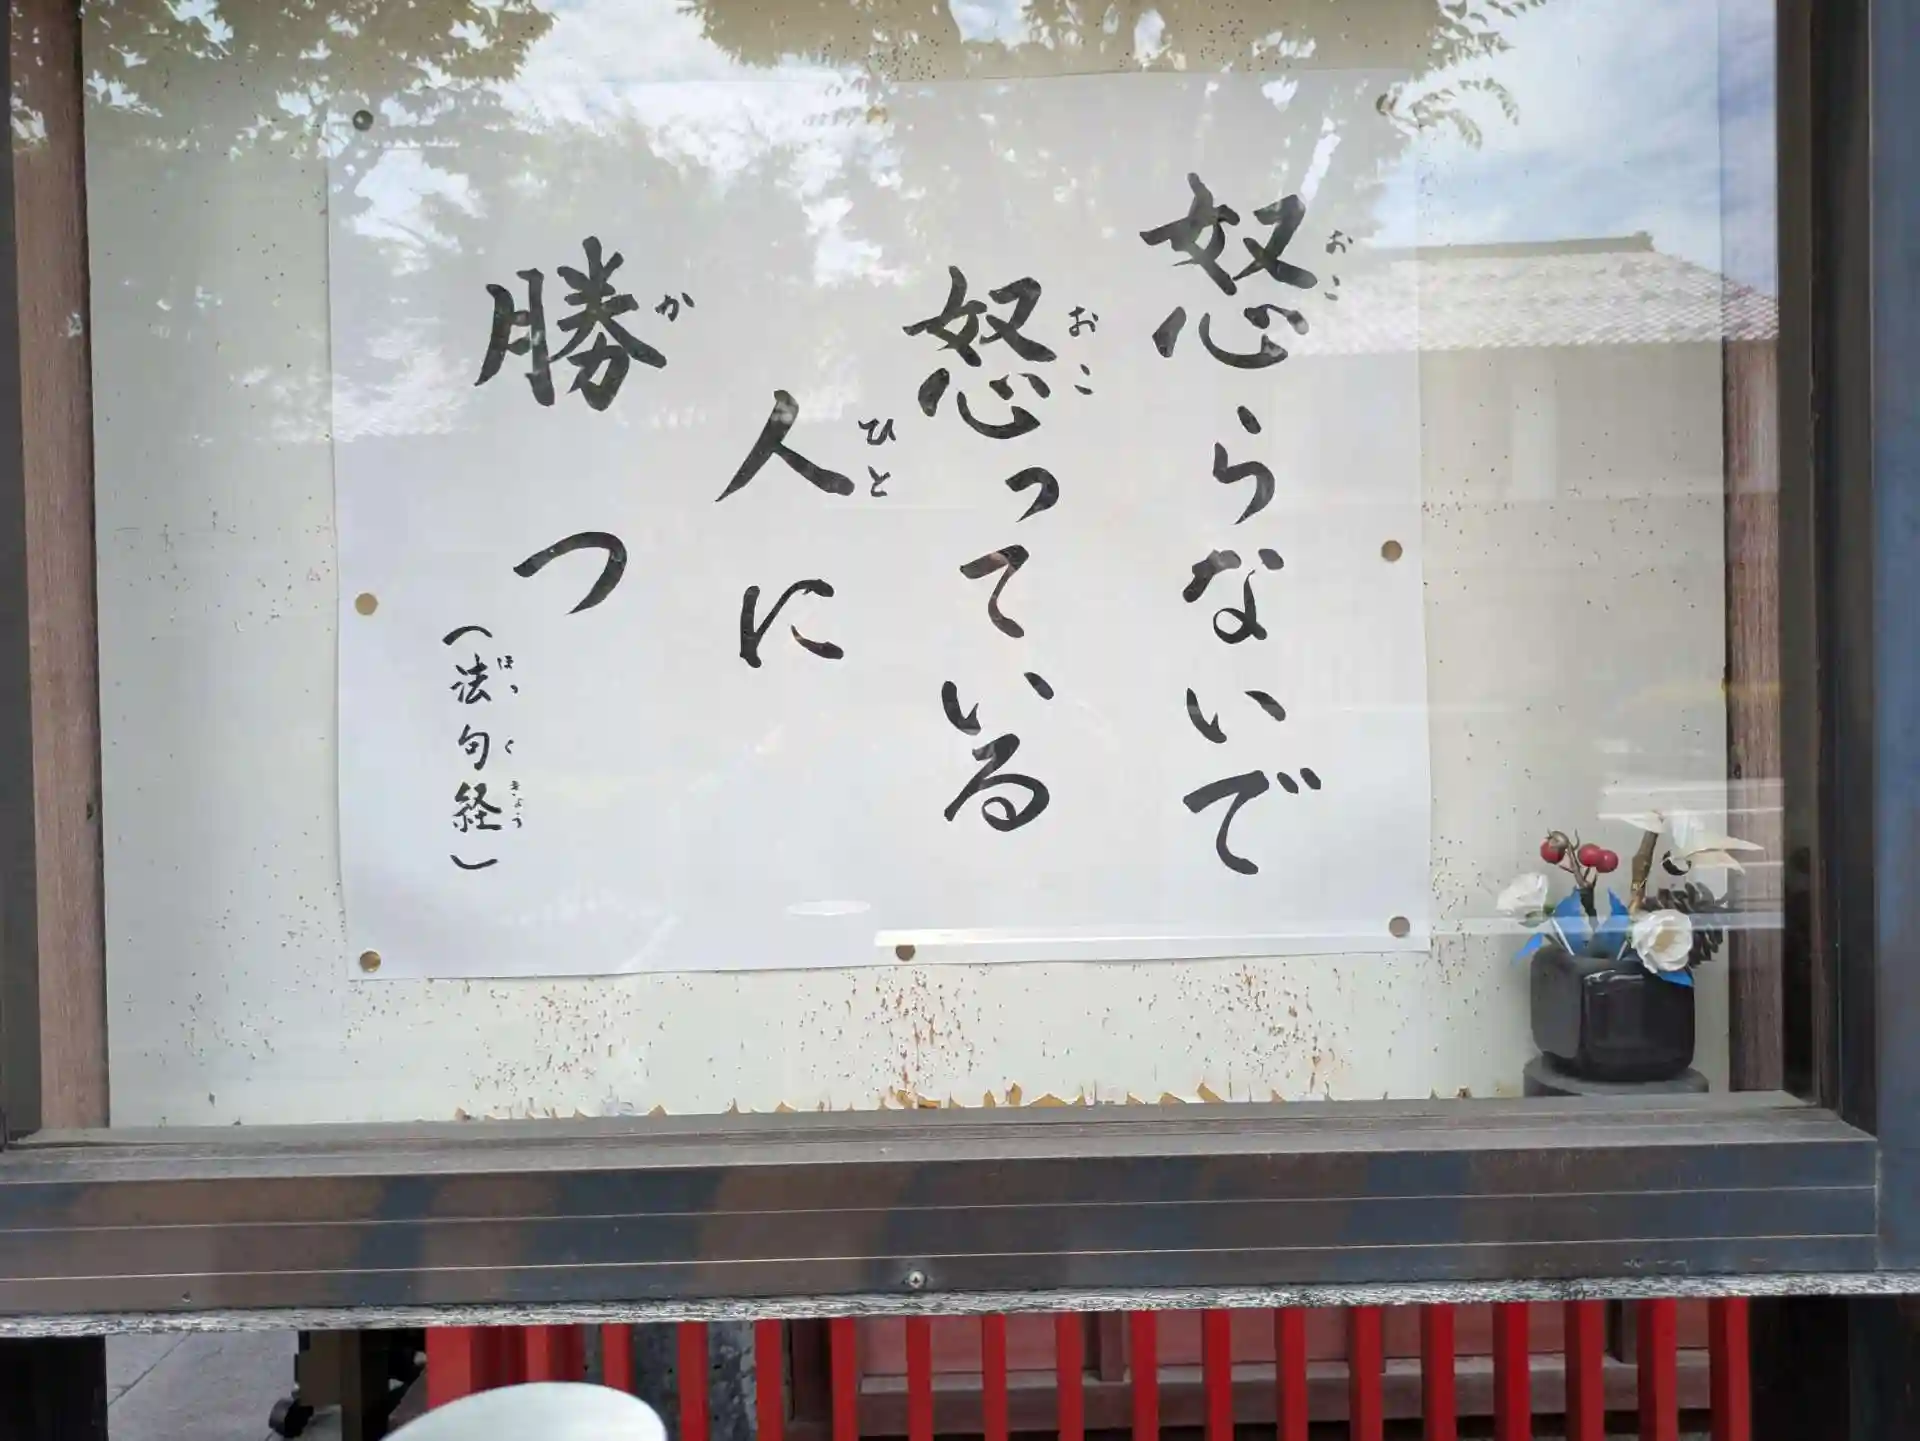 怒らないで
おこ
怒っている
おこ
人に
ひと
勝つ
か
（法句経）
ほっくきょう